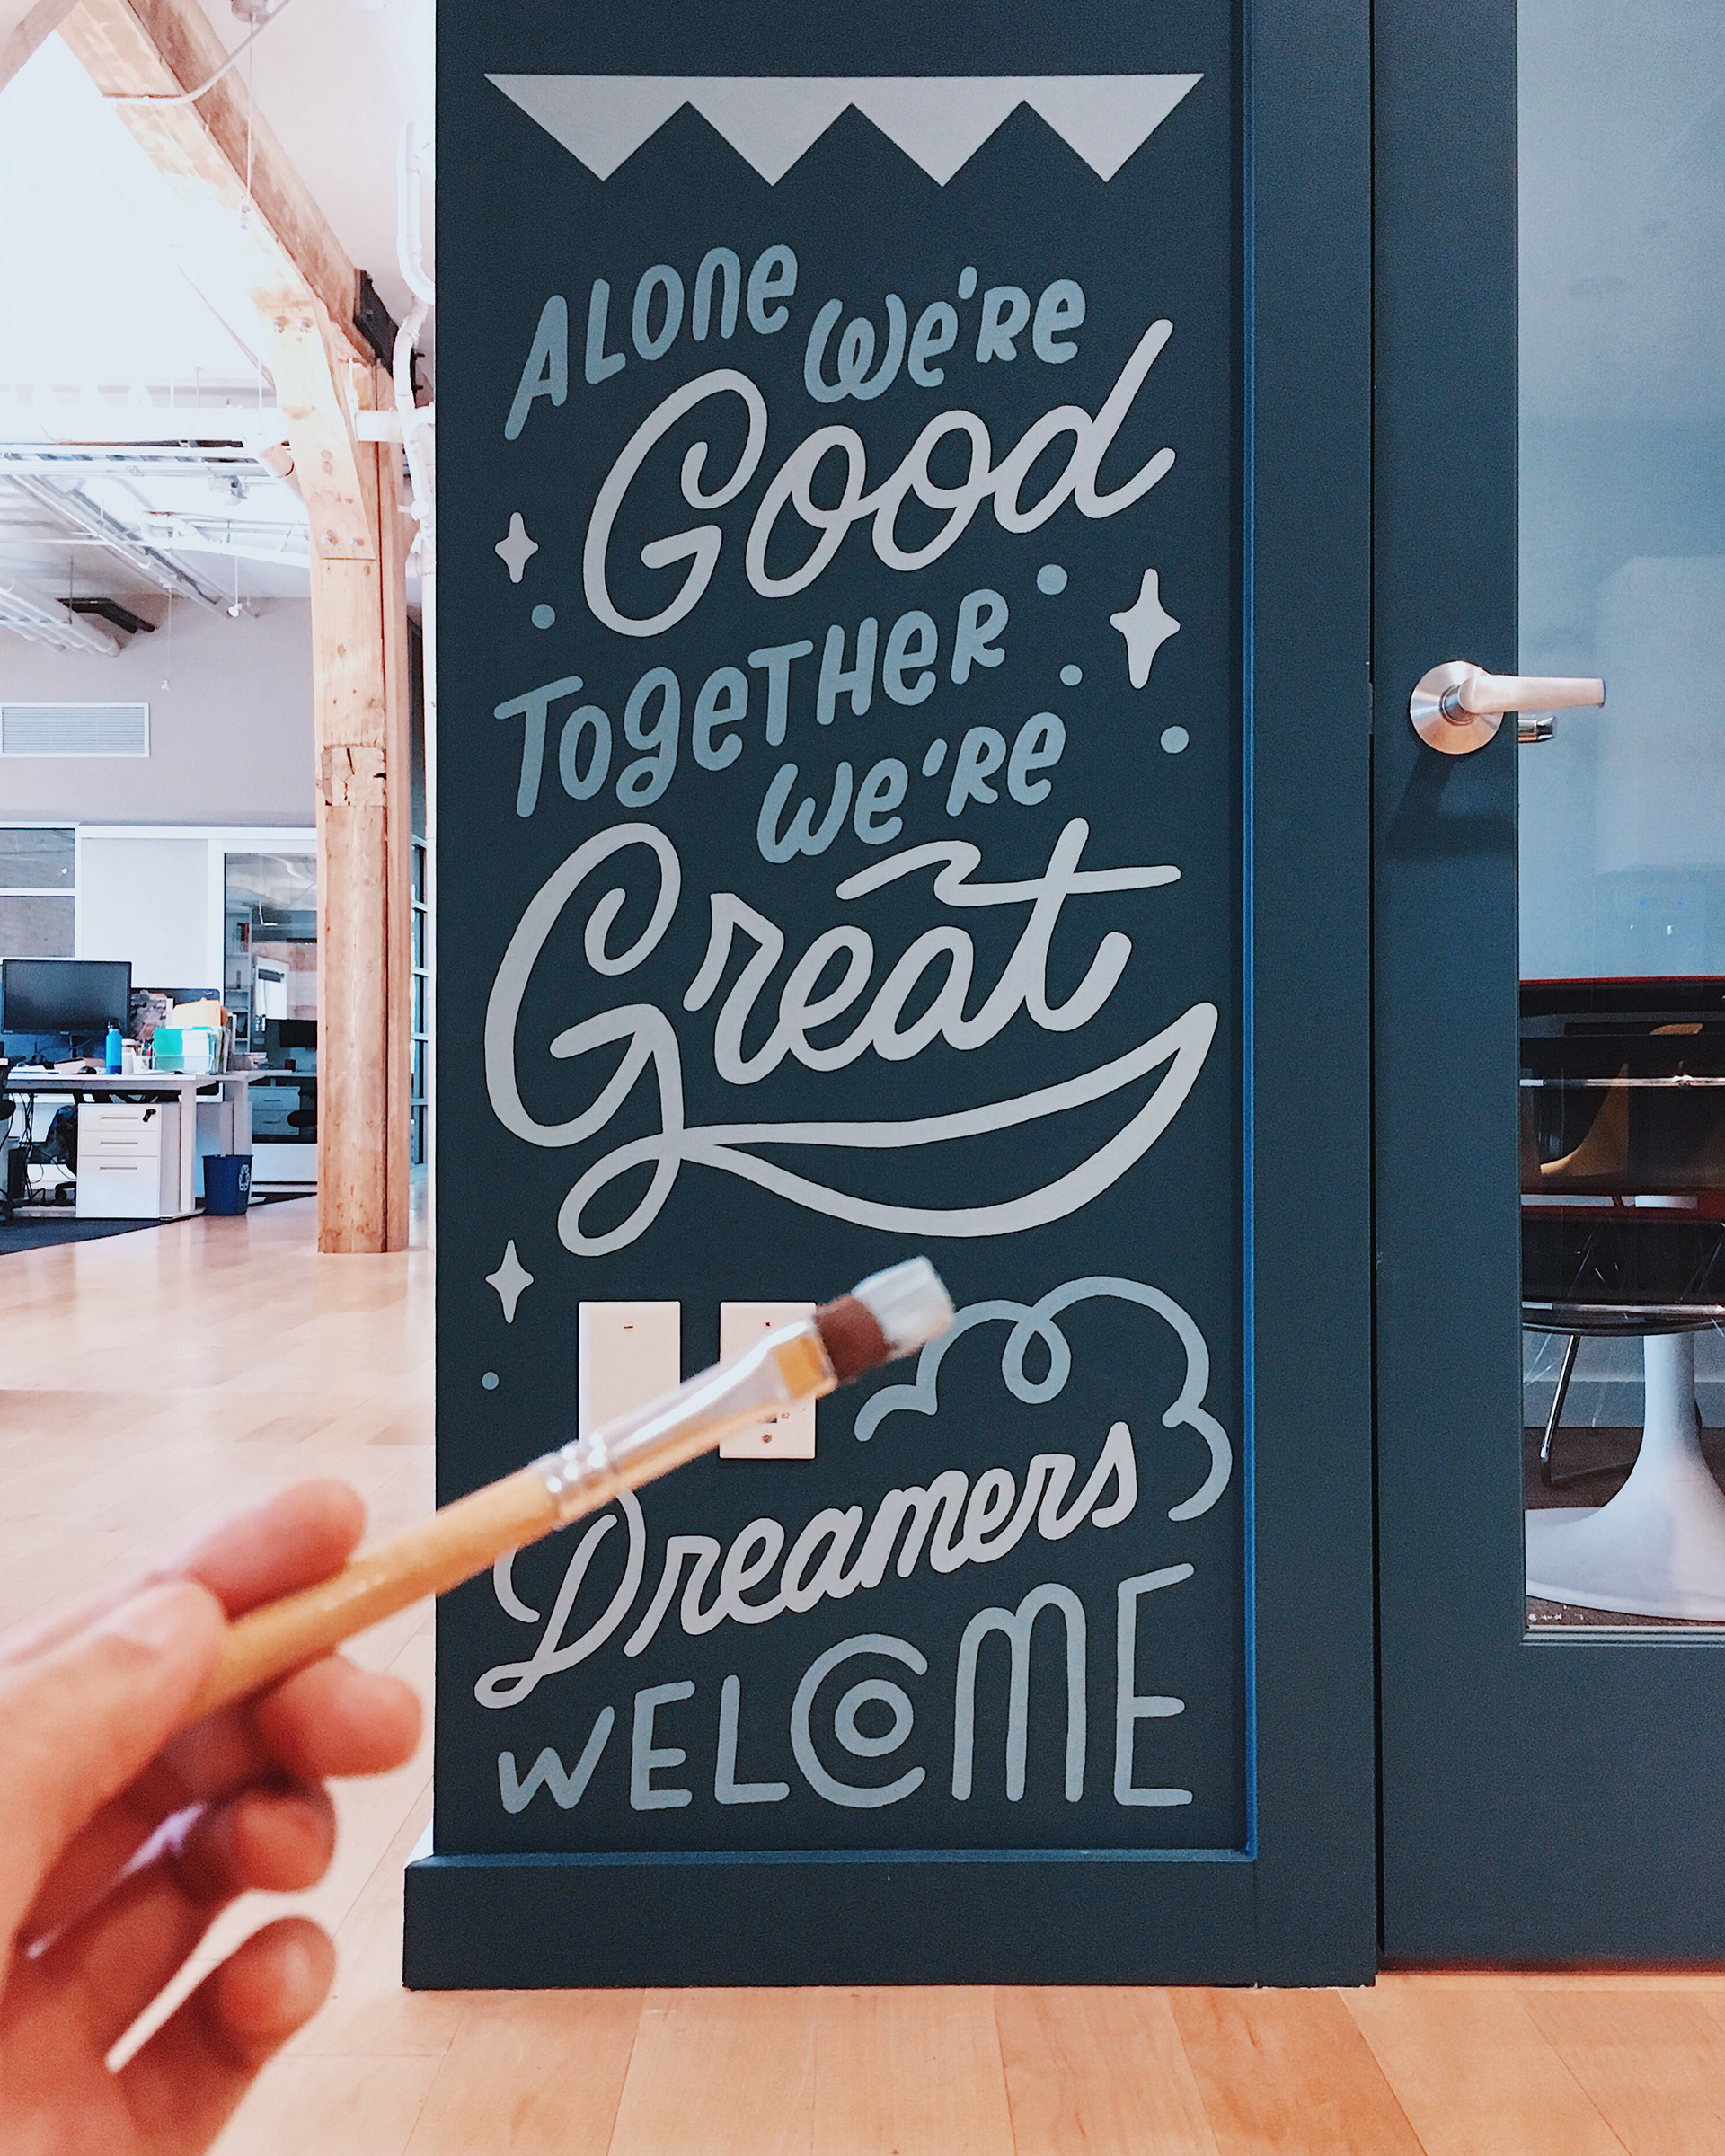 ALone we're
Good
TogeTHeR
we're
Great
Dreamers
WELCOME